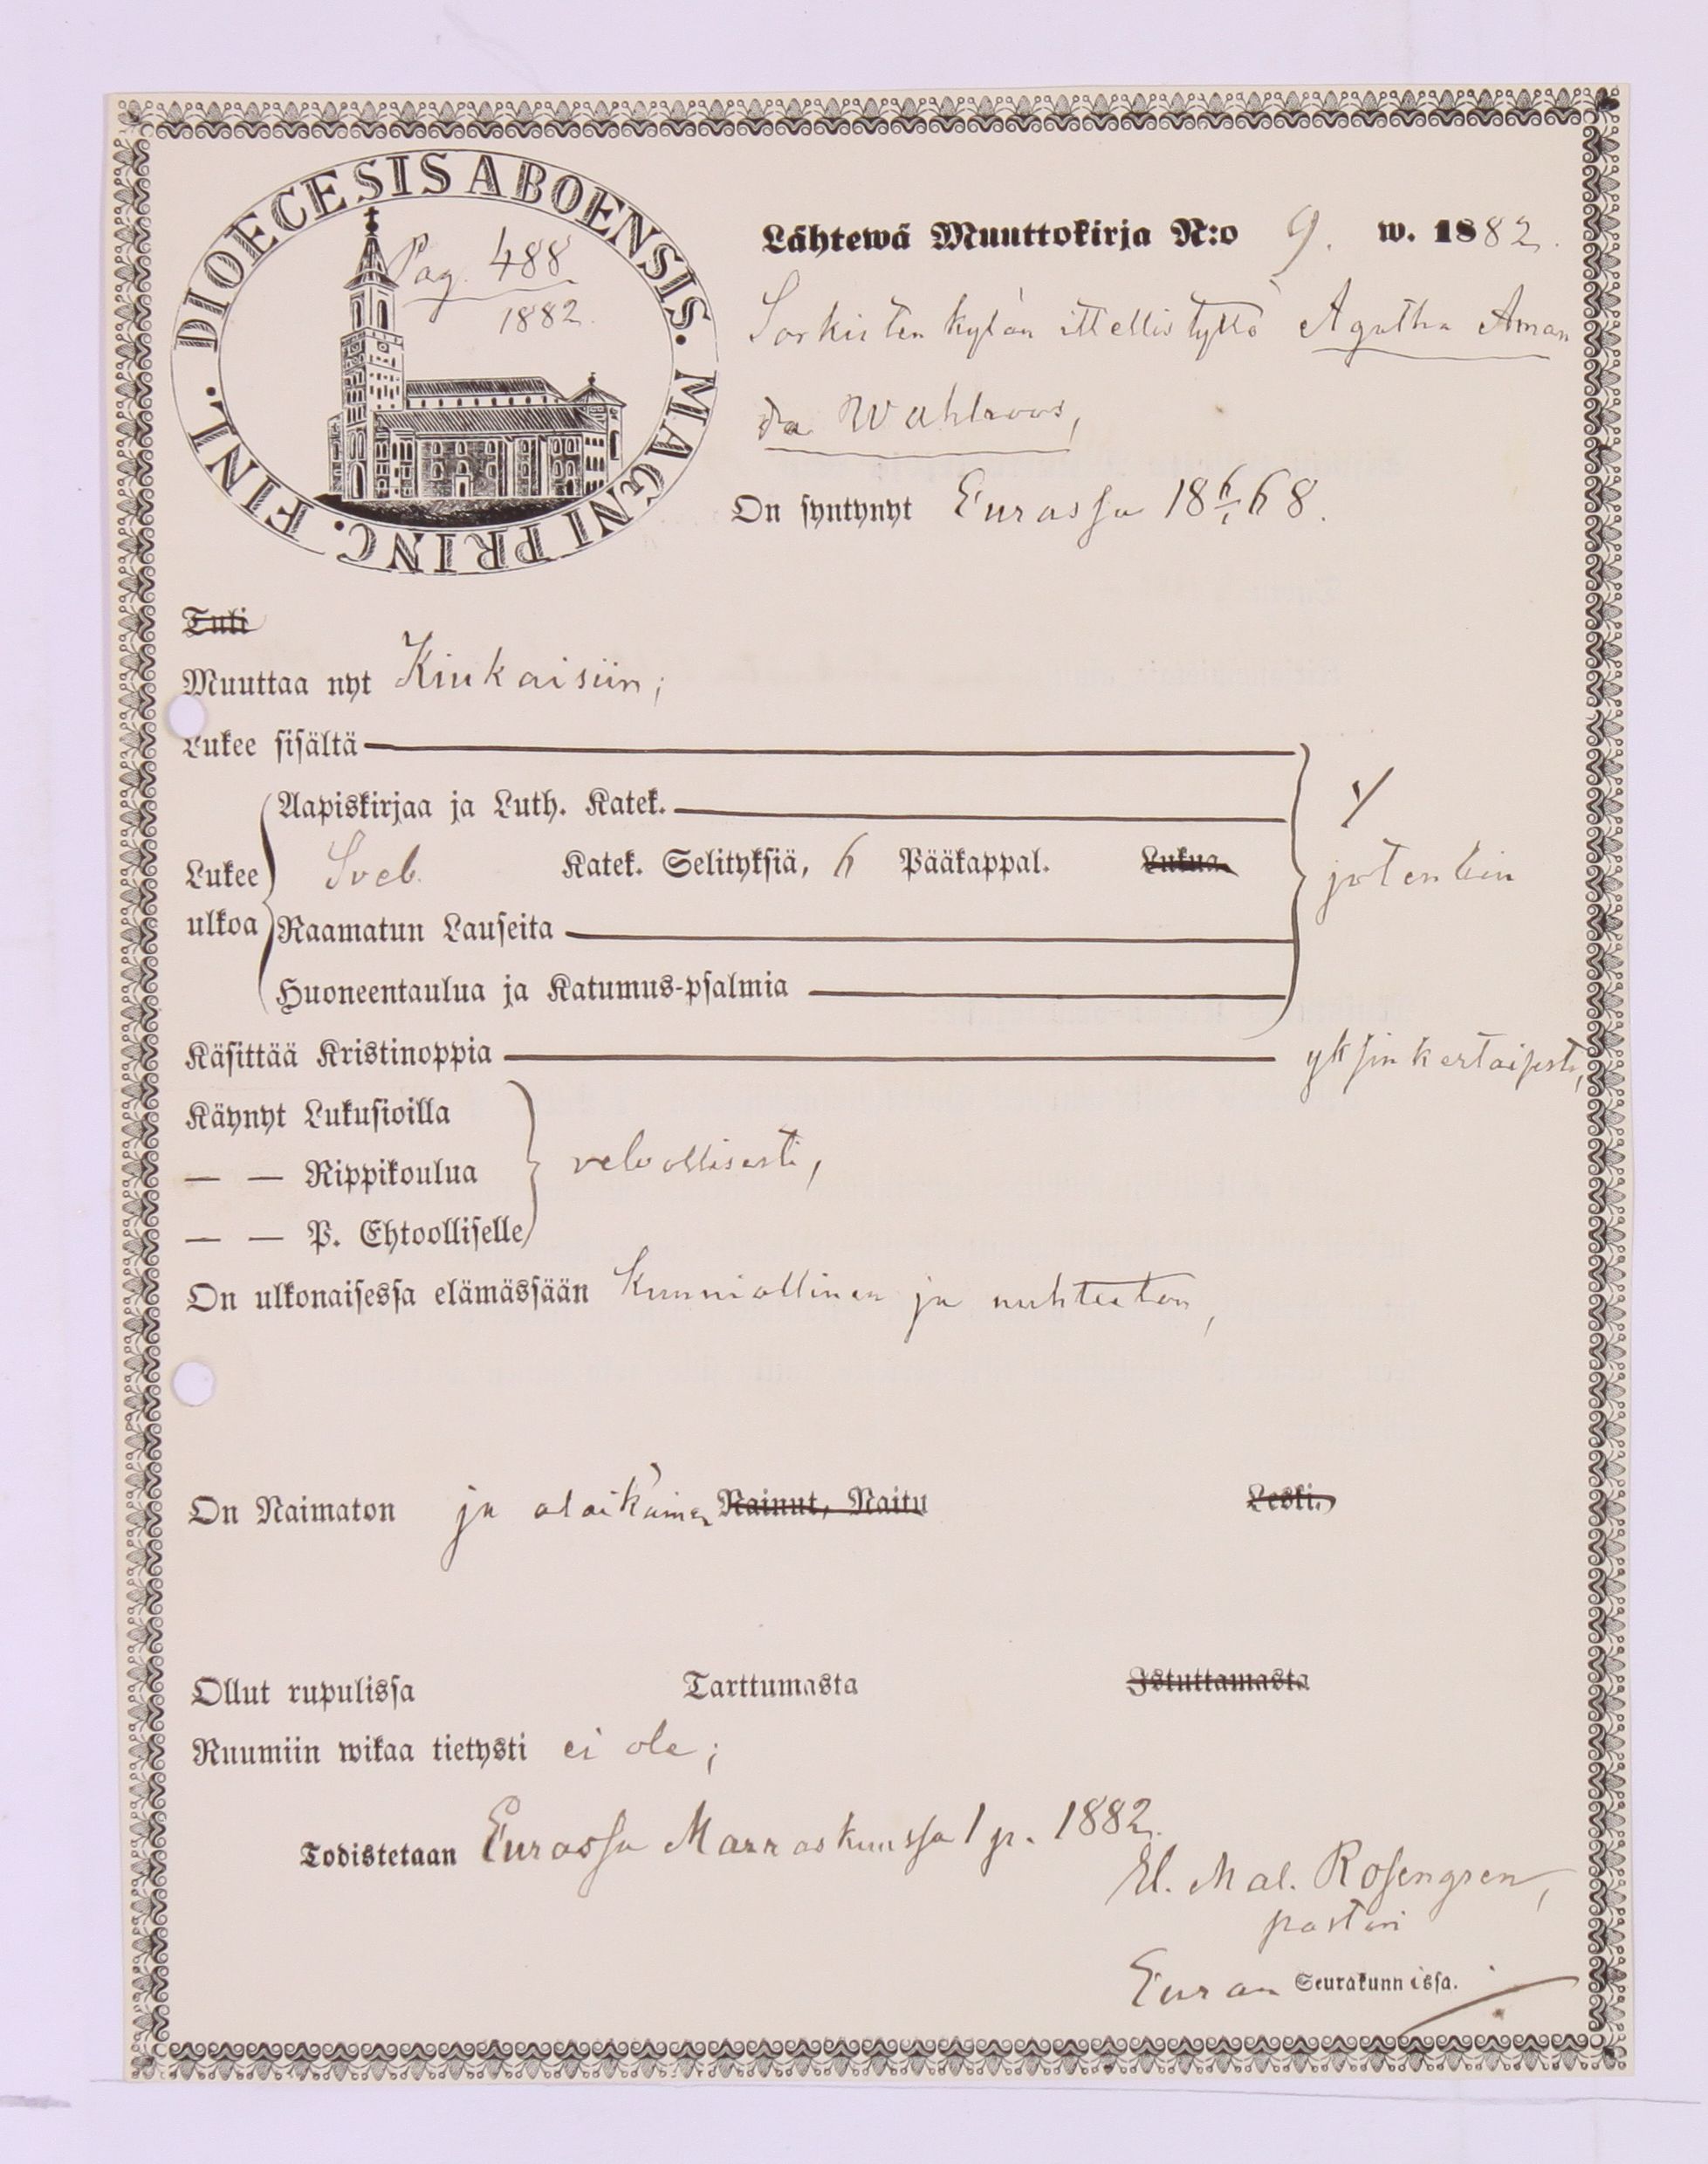 DIOECESIS ABOENSIS. MAGNI PRINC. FINL.
Pag. 488
1882.
Lähtewä Muuttokirja N:o 9. w. 1882.
Sorkisten kylän ittellis tyttö Agatha Aman
da Wahlroos,
On syntynyt Eurassa 18 6/1 68.
Tuli
Muuttaa nyt Kiukaisiin;
Lukee sisältä
Aapiskirjaa ja Luth. Katek.
Lukee ulkoa Sveb. Katek. Selityksiä, 6 Pääkappal. Lukua jotenkin
Raamatun Lauseita
Huoneentaulua ja Katumus-psalmia
Käsittää Kristinoppia yksinkertaisesti,
Käynyt Lukusioilla
— — Rippikoulua velvollisesti,
— — P. Ehtoolliselle
On ulkonaisessa elämässään kunniallinen ja nuhteeton,
On Naimaton ja alaikäinen Nainut, Naitu Leski.
Ollut rupulissa Tarttumasta Istuttamasta
Ruumiin wikaa tietysti ei ole;
Todistetaan Eurassa Marraskuussa 1 p. 1882.
El. Mal. Rosengren,
pastori
Euran Seurakunnissa.